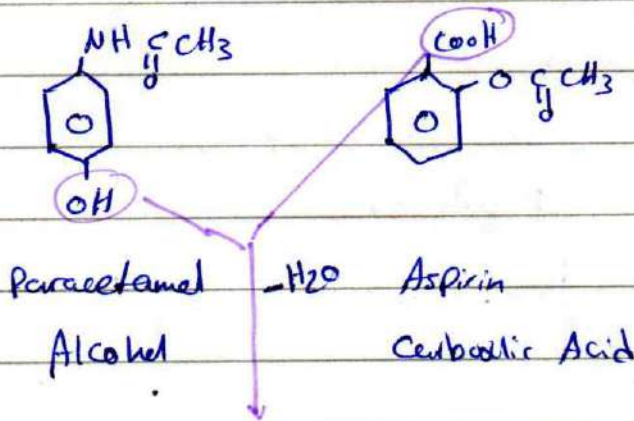 NH C CH3
O
OH
COOH
O C CH3
O
Paracetamol -H2O Aspirin
Alcohol Carboxlic Acid